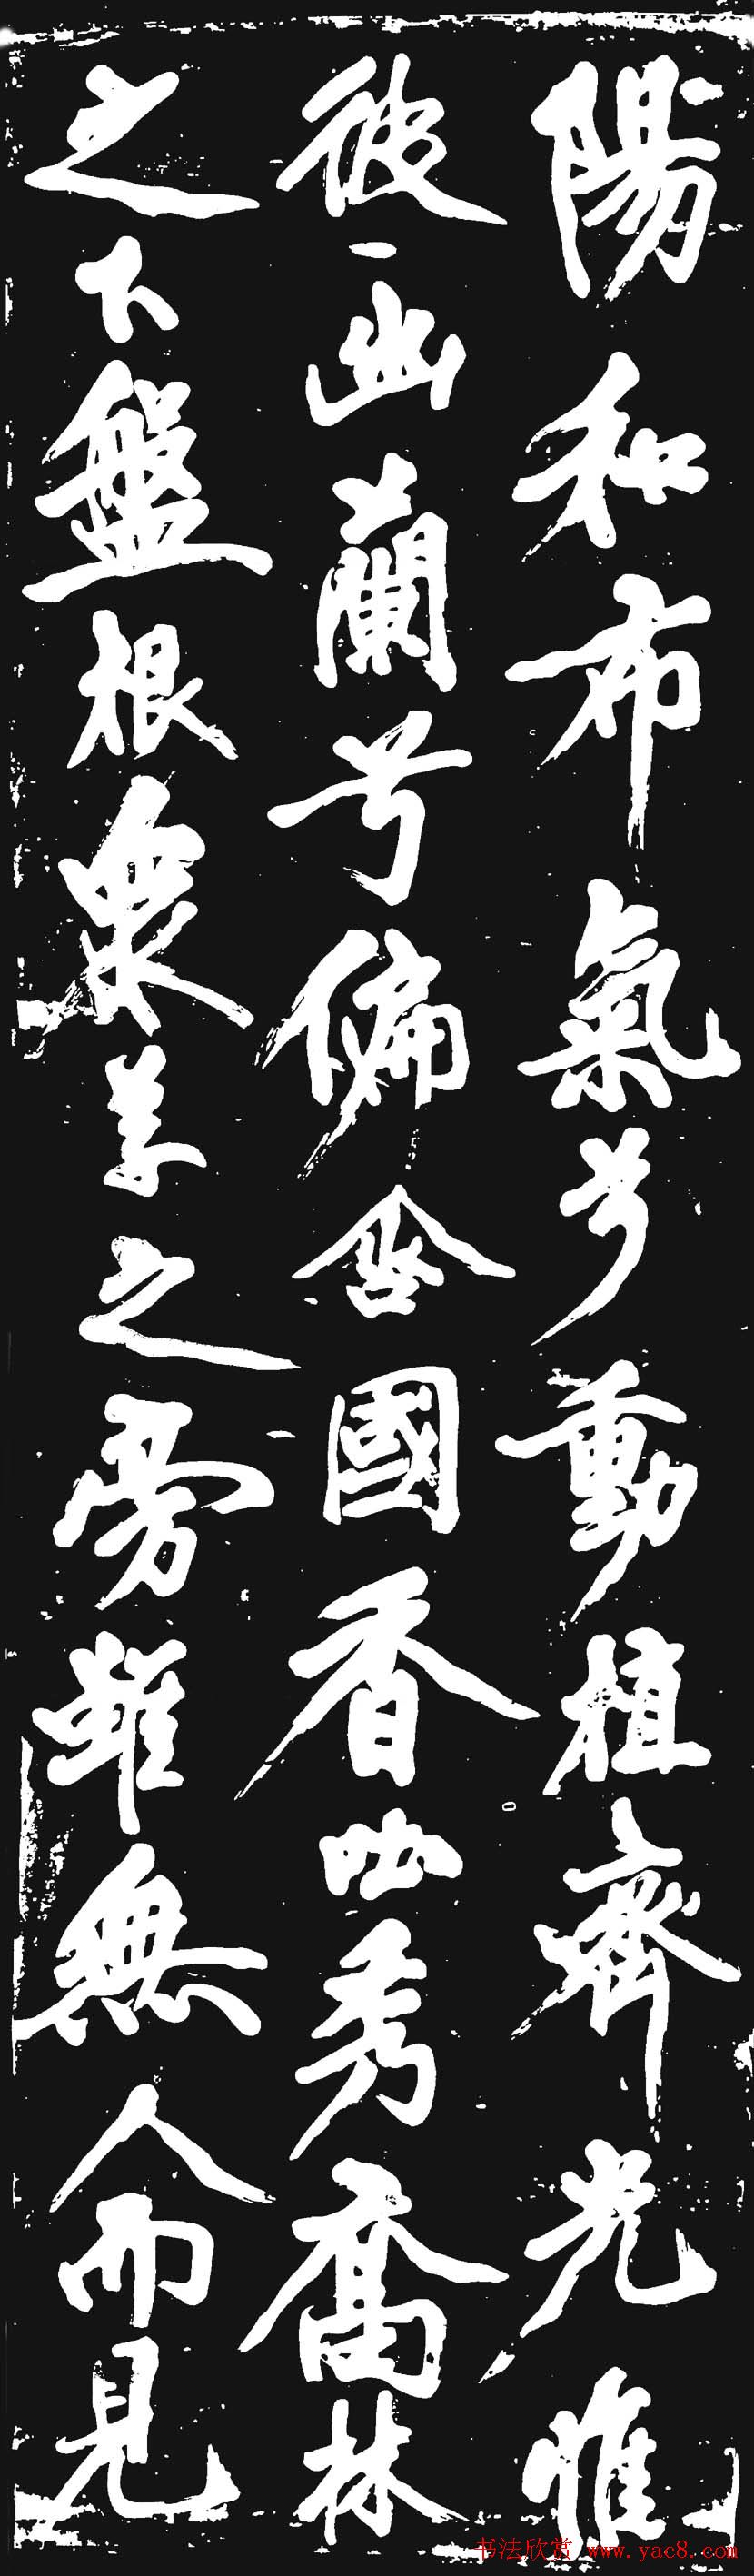 陽和布氣兮動植齊光惟
彼幽蘭兮偏含國香吐秀喬林
之下盤根衆草之旁雖無人而見
书法欣赏 www.yac8.com